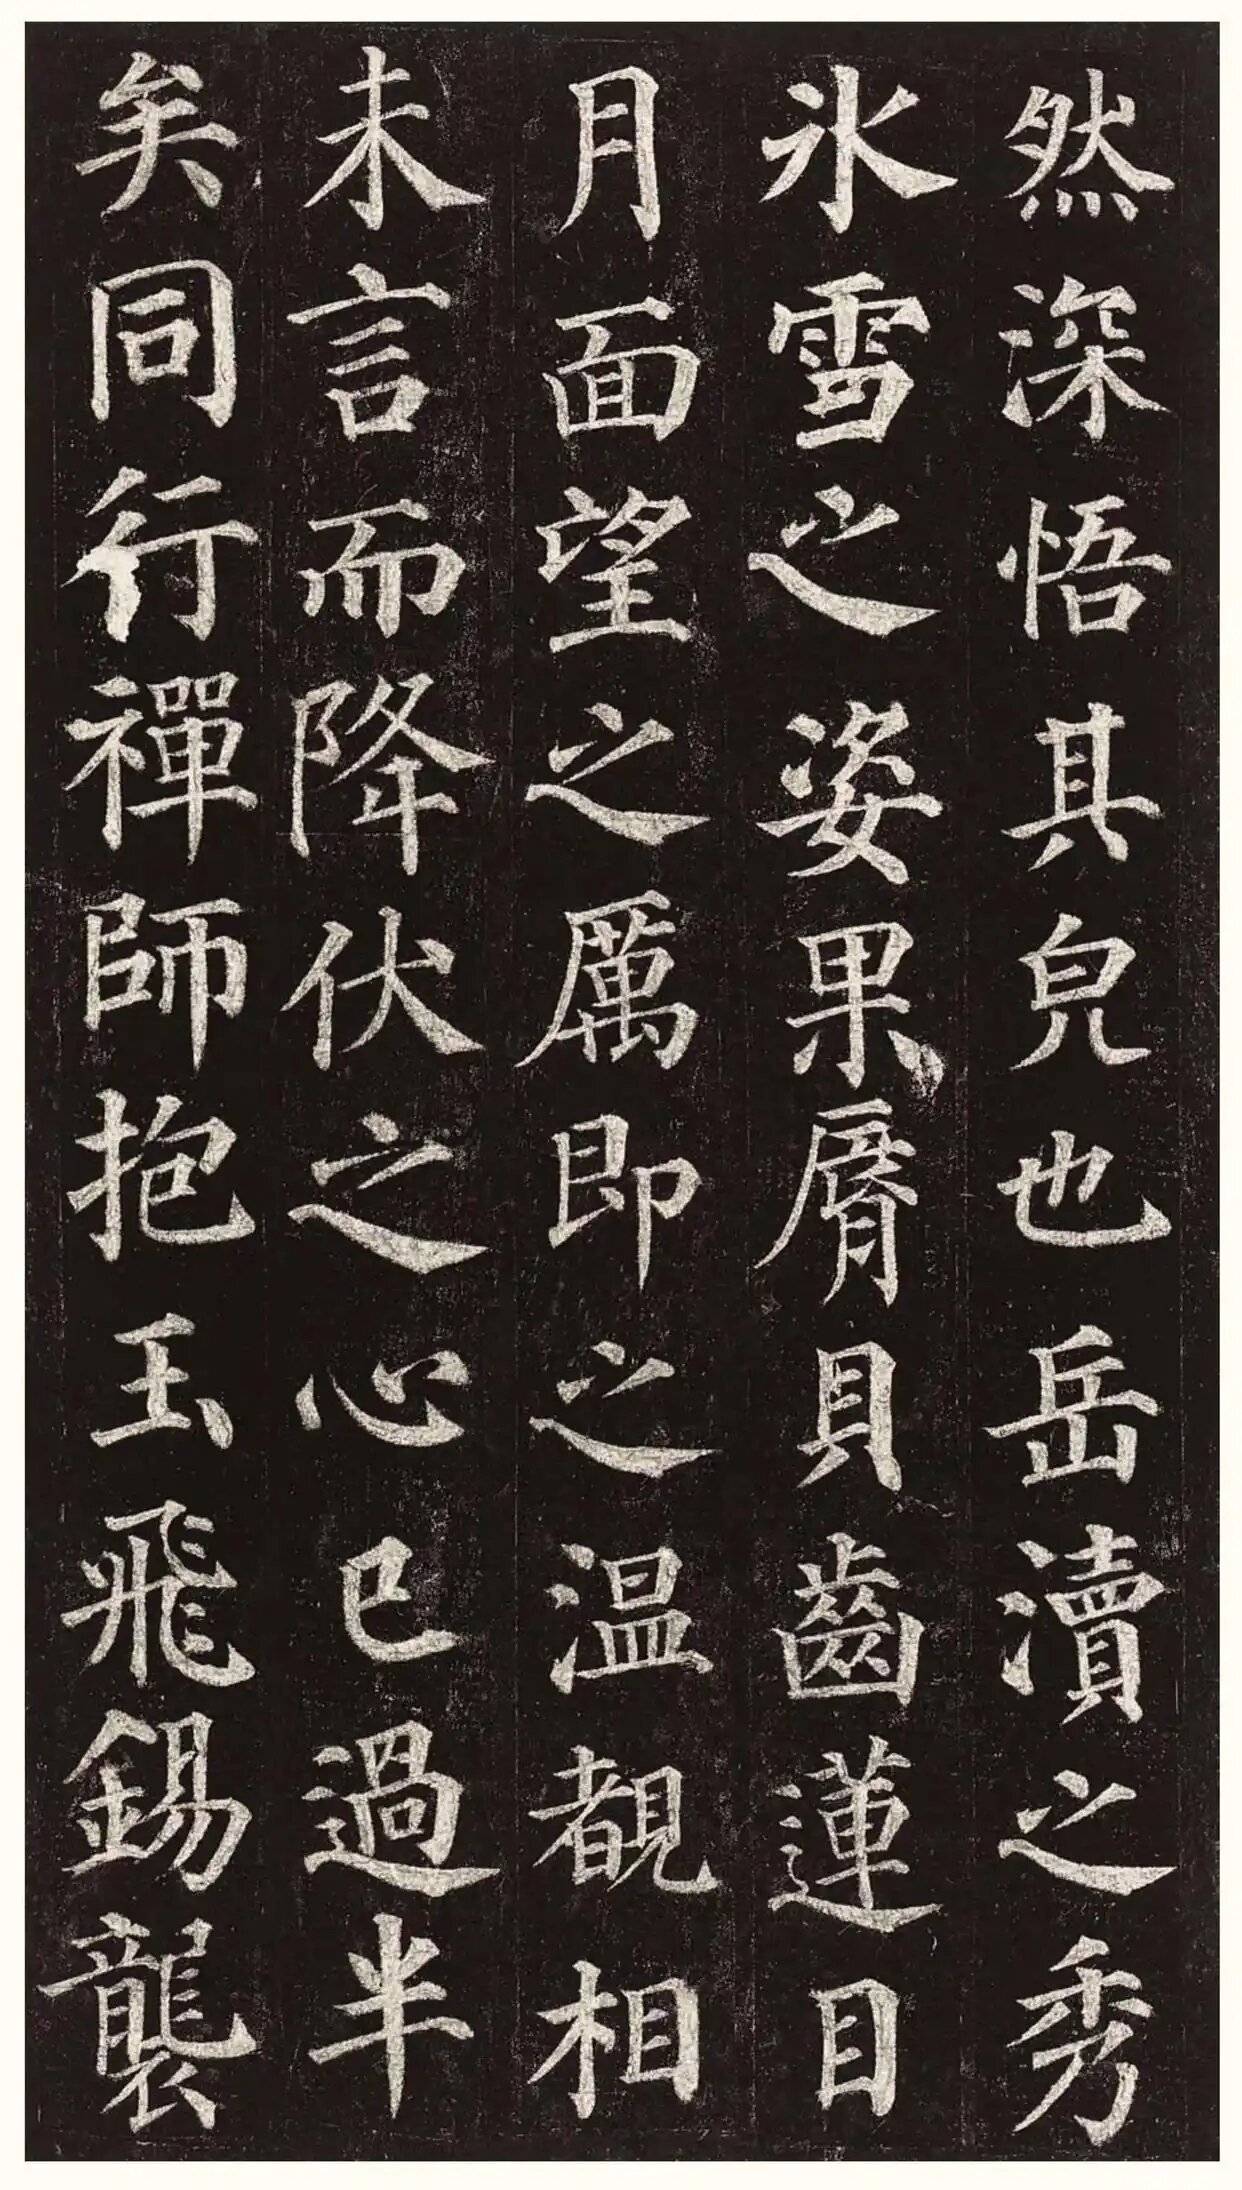 然深悟其皃也岳瀆之秀
氷雪之姿果脣貝齒蓮目
月面望之厲即之温覩相
未言而降伏之心已過半
矣同行禪師抱玉飛錫襲